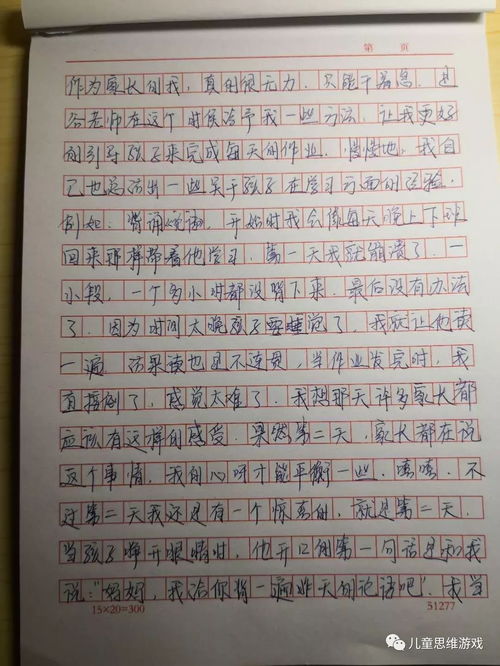 第 页
作为家长的我，真的很无力，只能干着急，是
谷老师在这个时候给予我一些方法，让我更好
的引导孩子来完成每天的作业。慢慢地，我自
己也总结出一些关于孩子在学习方面的经验。
例如：背诵论语，开始时我会像每天晚上下班
回来那样带着他学习，第一天我就崩溃了，一
小段，一个多小时都没背下来，最后没有办法
了，因为时间太晚孩子要睡觉了，我就让他读
一遍 结果读也是不连贯，当作业发完时，我
直接倒了，感觉太难了。我想那天许多家长都
应该有这样的感受。果然第二天，家长都在说
这个事情，我的心呀才能平衡一些。嘻嘻，不
过第二天我还是有一个惊喜的，就是第二天，
当孩子睁开眼睛时，他开口的第一句话是和我
说：“妈妈，我给你背一遍昨天的论语吧”。我当
15×20=300
51277
儿童思维游戏